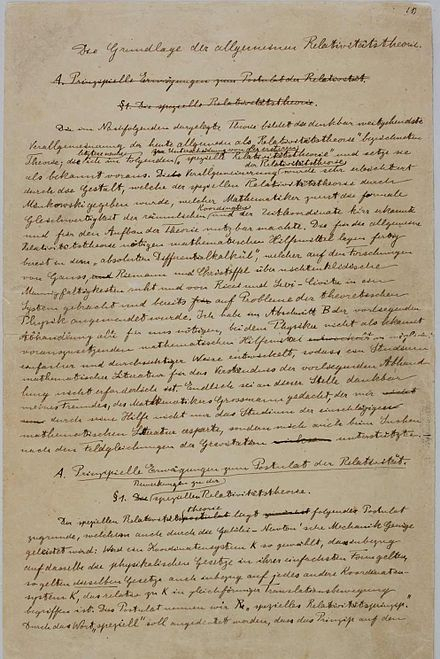 Die Grundlage der allgemeinen Relativitätstheorie.
A. Prinzipielle Erwägungen zum Postulat der Relativität.
§1. Die spezielle Relativitätstheorie.
Die im Nachfolgenden dargelegte Theorie bildet die denkbar weitgehendste
Verallgemeinerung der heute allgemein als "Relativitätstheorie" bezeichneten
Theorie; die letztere nenne ich im Folgenden zur Unterscheidung von der ersteren "spezielle Relativitätstheorie" und setze sie
als bekannt voraus. Die Verallgemeinerung der Relativitätstheorie wurde sehr erleichtert
durch die Gestalt, welche der speziellen Relativitätstheorie durch
Minkowski gegeben wurde, welcher Mathematiker zuerst die formale
Gleichwertigkeit der räumlichen Koordinaten und der Zeitkoordinate klar erkannte
und für den Aufbau der Theorie nutzbar machte. Die für die allgemeine
Relativitätstheorie nötigen mathematischen Hilfsmittel lagen fertig
bereit in dem "absoluten Differentialkalkül", welcher auf den Forschungen
von Gauss, Riemann und Christoffel über nichteuklidische
Mannigfaltigkeiten ruht und von Ricci und Levi-Civita in ein
System gebracht und bereits auf Probleme der theoretischen
Physik angewendet wurde. Ich habe im Abschnitt B der vorliegenden
Abhandlung alle für uns nötigen, bei dem Physiker nicht als bekannt
vorauszusetzenden mathematischen Hilfsmittel in möglichst
einfacher und durchsichtiger Weise entwickelt, sodass ein Studium
mathematischer Literatur für das Verständnis der vorliegenden Abhand-
lung nicht erforderlich ist. Endlich sei an dieser Stelle dankbar
meines Freundes, des Mathematikers Grossmann gedacht, der mir
durch seine Hilfe nicht nur das Studium der einschlägigen
mathematischen Literatur ersparte, sondern mich auch beim Suchen
nach den Feldgleichungen der Gravitation unterstützte.
A. Prinzipielle Erwägungen zum Postulat der Relativität.
§1. Die Bemerkungen zu der speziellen Relativitätstheorie.
Der speziellen Relativitätstheorie liegt folgendes Postulat
zugrunde, welchem auch durch die Galilei-Newton'sche Mechanik Genüge
geleistet wird: Wird ein Koordinatensystem K so gewählt, dass inbezug
auf dasselbe die physikalischen Gesetze in ihrer einfachsten Form gelten,
so gelten dieselben Gesetze auch inbezug auf jedes andere Koordinaten-
system K', das relativ zu K in gleichförmiger Translationsbewegung
begriffen ist. Dies Postulat nennen wir "spezielles Relativitätsprinzip".
Durch das Wort "speziell" soll angedeutet werden, dass das Prinzip auf den